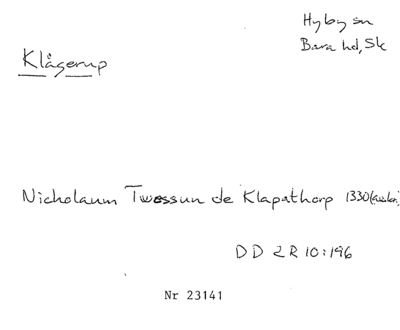 Hyby sn
Bara hd, Sk
Klågerup
Nicholaum Twessun de Klapathorp 1330
DD 2R 10:196
Nr 23141